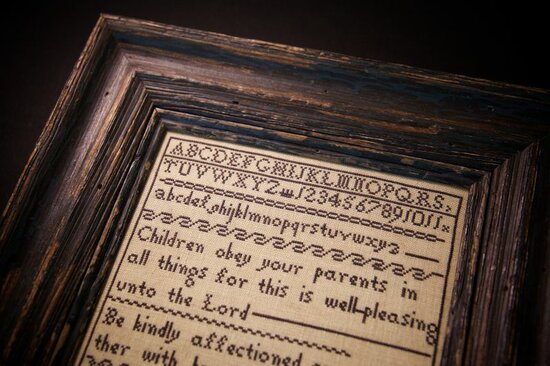 ABCDEFGHIJKLMNOPQRS.
TUVWXYZ 1234567891011
abcdefghijklmnopqrstuvwxyz
Children obey your parents in
all things for this is well-pleasing
unto the Lord
Be kindly affectioned
ther with